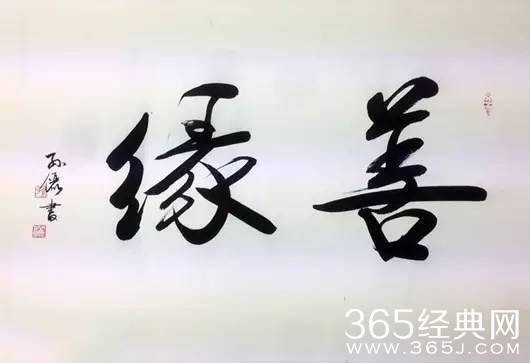 善缘
孙俪书
365经典网
www.365j.com